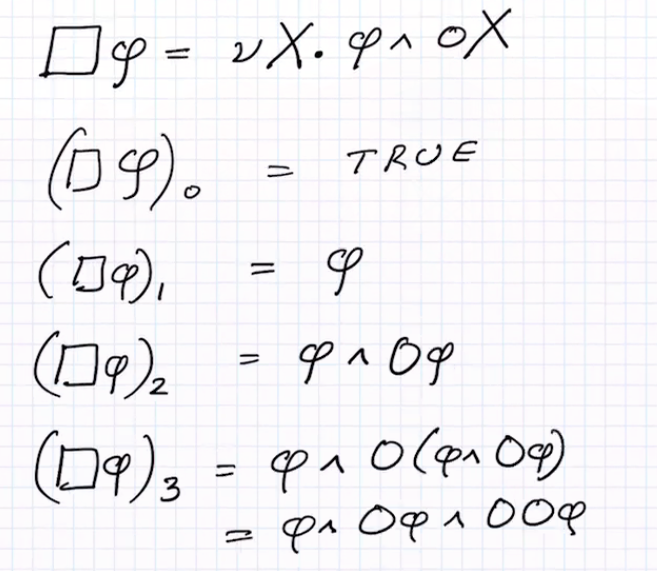 □φ = νX. φ ∧ ○X
(□φ)₀ = TRUE
(□φ)₁ = φ
(□φ)₂ = φ ∧ ○φ
(□φ)₃ = φ ∧ ○(φ ∧ ○φ)
= φ ∧ ○φ ∧ ○○φ